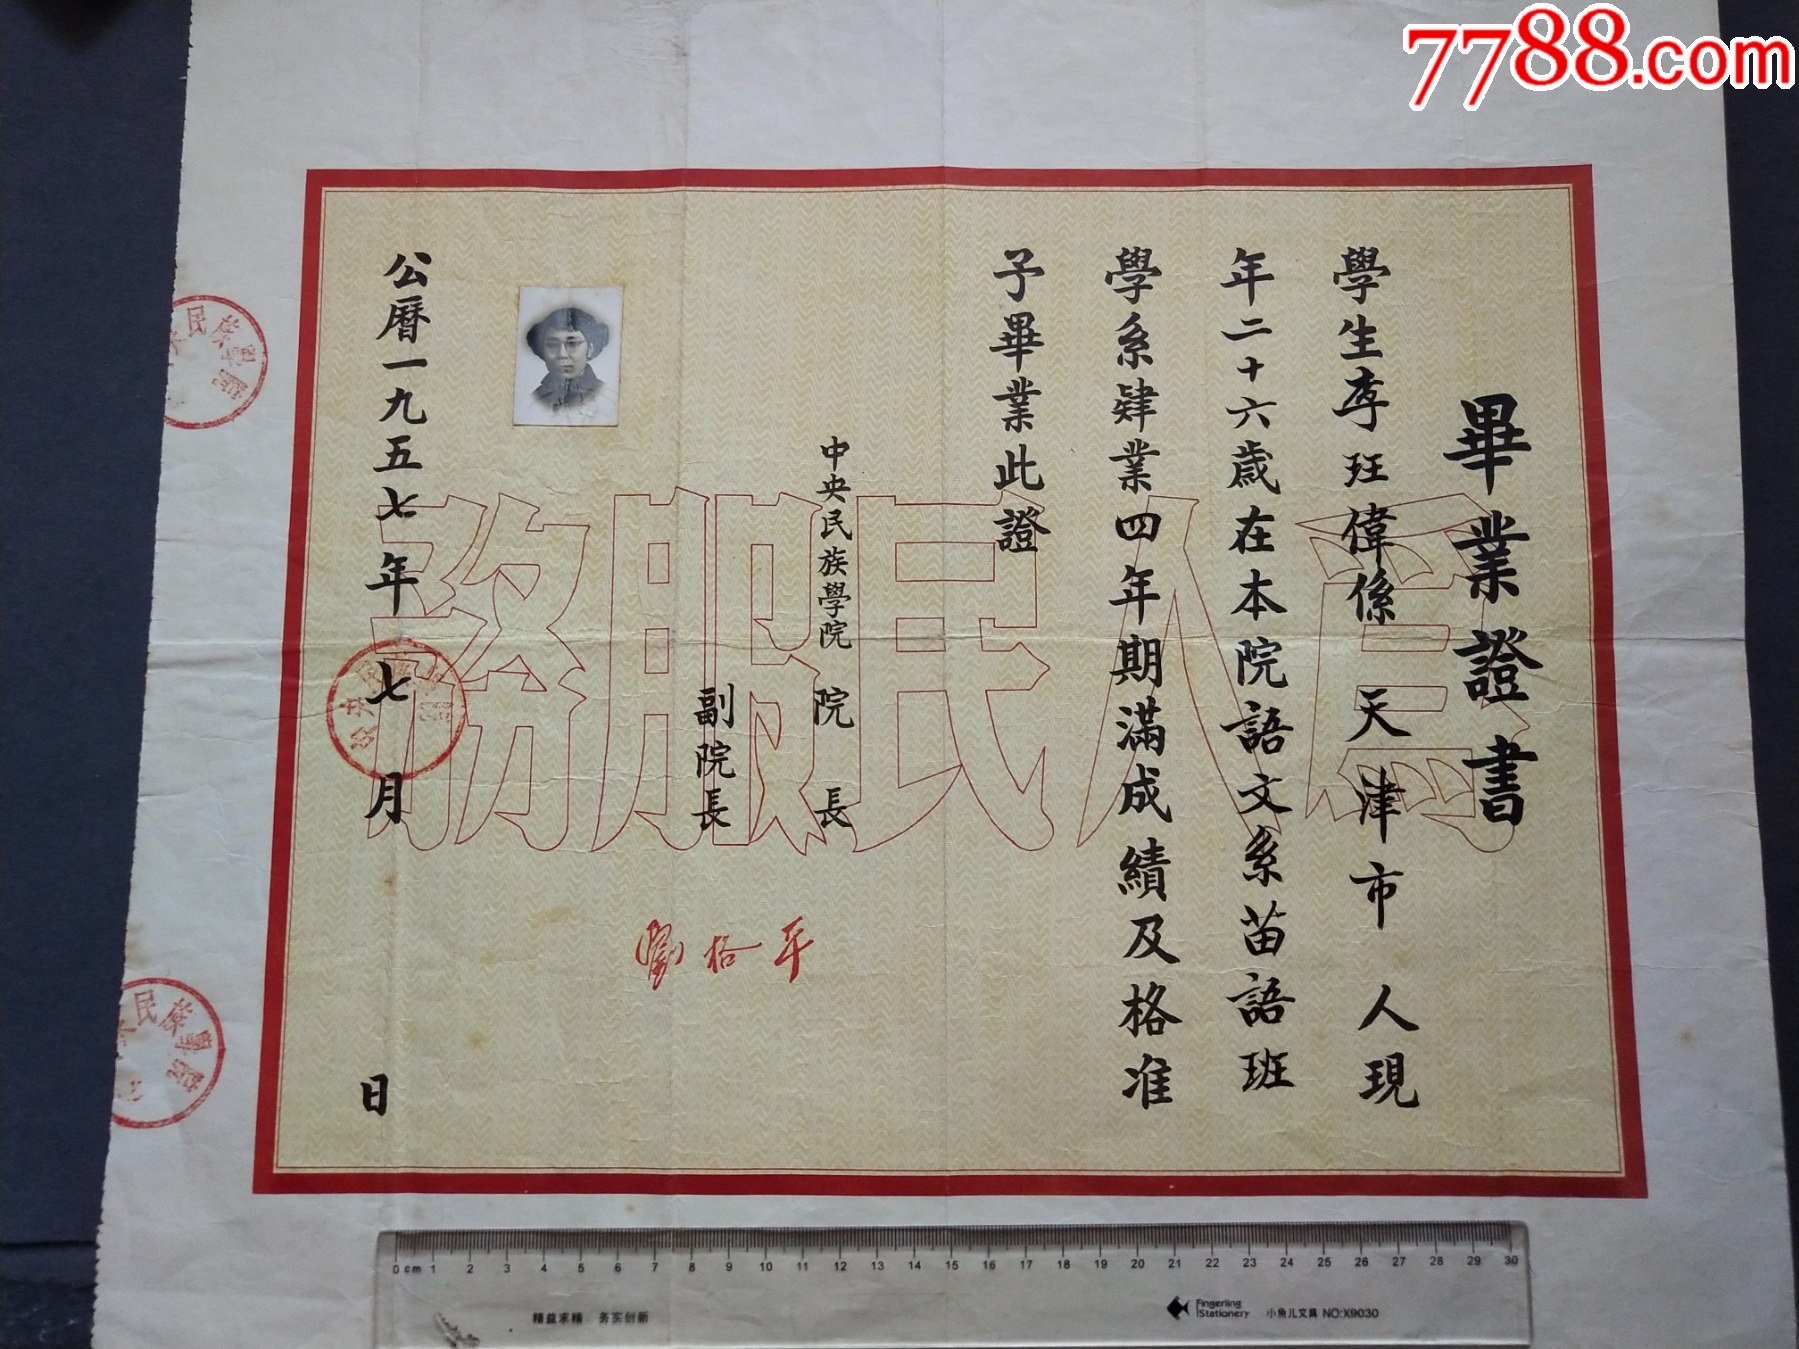 7788.com
畢業證書
學生李玨偉係天津市人現
年二十六歲在本院語文系苗語班
學系肄業四年期滿成績及格准
予畢業此證
中央民族學院院長
副院長
劉格平
公曆一九五七年七月日
為人民服務
0 cm 1 2 3 4 5 6 7 8 9 10 11 12 13 14 15 16 17 18 19 20 21 22 23 24 25 26 27 28 29 30
精益求精 务实创新
Fingerling Stationery 小鱼儿文具 NO:X9030